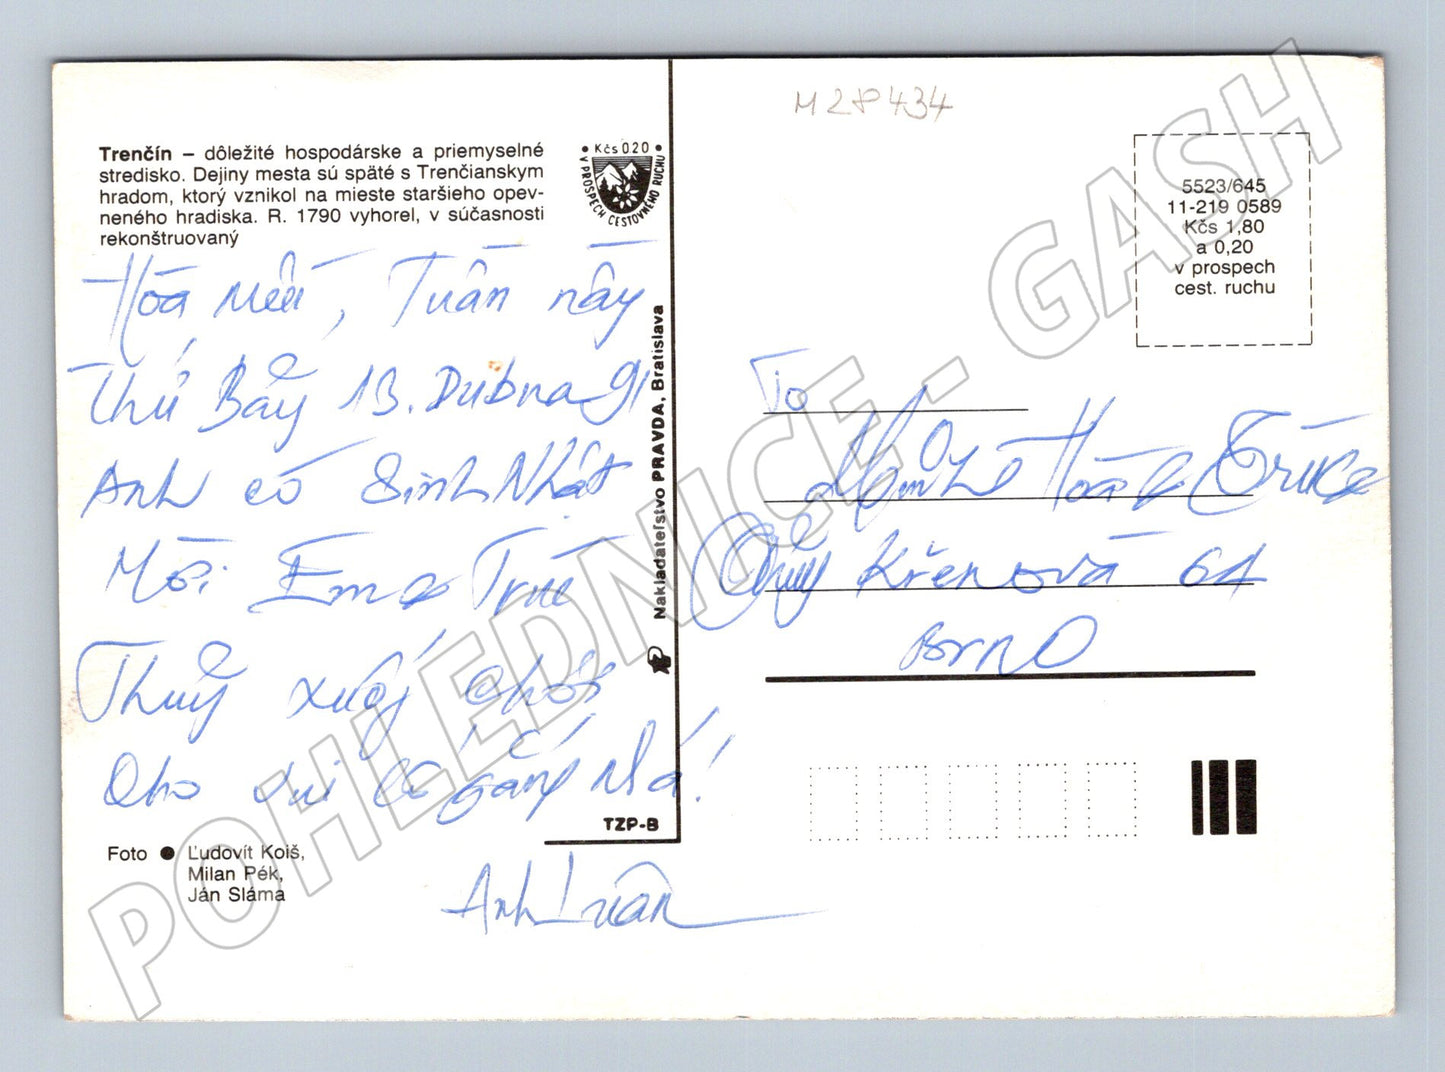 M28434
Trenčín – dôležité hospodárske a priemyselné
stredisko. Dejiny mesta sú späté s Trenčianskym
hradom, ktorý vznikol na mieste staršieho opev-
neného hradiska. R. 1790 vyhorel, v súčasnosti
rekonštruovaný
• Kčs 0.20 •
V PROSPECH CESTOVNÉHO RUCHU
5523/645
11-219 0589
Kčs 1,80
a 0,20
v prospech
cest. ruchu
Hòa mến, Tuần này
Thứ Bảy 13. Dubna 91
Anh có Sinh Nhật
Mời Em Trúc
Thuỷ
Cho vui
Anh Luân
To
Hòa Trúc
Thuỷ Křenová 61
Brno
Nakladateľstvo PRAVDA, Bratislava
TZP-B
Foto ● Ľudovít Koiš,
Milan Pék,
Ján Sláma
POHLEDNICE - GASH